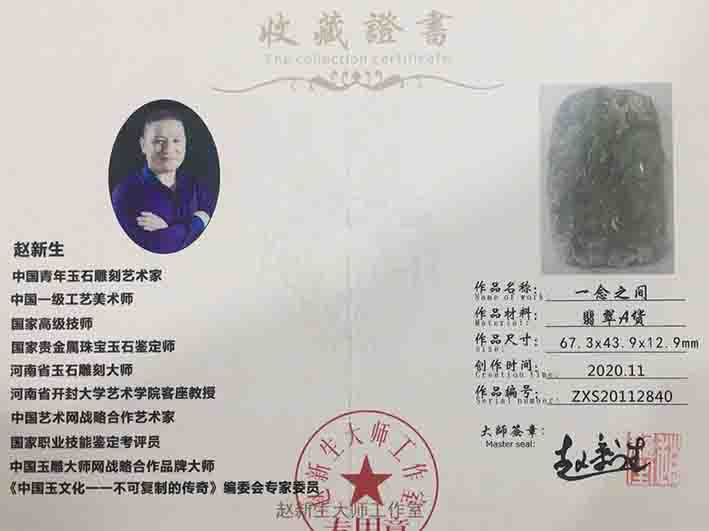 收藏證書
The collection certificate
赵新生
中国青年玉石雕刻艺术家
中国一级工艺美术师
国家高级技师
国家贵金属珠宝玉石鉴定师
河南省玉石雕刻大师
河南省开封大学艺术学院客座教授
中国艺术网战略合作艺术家
国家职业技能鉴定考评员
中国玉雕大师网战略合作品牌大师
《中国玉文化——不可复制的传奇》编委会专家委员
作品名称: 一念之间
Name of work
作品材料: 翡翠A货
Material:
作品尺寸: 67.3x43.9x12.9mm
Size:
创作时间: 2020.11
Creation time:
作品编号: ZXS20112840
Serial number:
大师签章:
Master seal:
赵新生
赵新生大师工作室
赵新生大师工作室
专用章